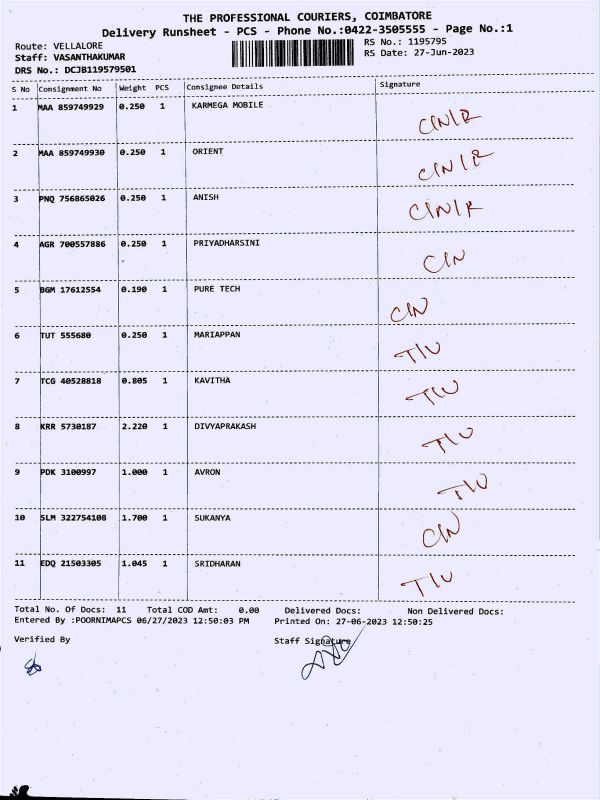 THE PROFESSIONAL COURIERS, COIMBATORE
Delivery Runsheet - PCS - Phone No.:0422-3505555 - Page No.:1
Route: VELLALORE
RS No.: 1195795
Staff: VASANTHAKUMAR
RS Date: 27-Jun-2023
DRS No.: DCJB119579501
S No Consignment No Weight PCS Consignee Details Signature
1 MAA 859749929 0.250 1 KARMEGA MOBILE CIN/R
2 MAA 859749930 0.250 1 ORIENT CIN/R
3 PNQ 756865026 0.250 1 ANISH CIN/R
4 AGR 700557886 0.250 1 PRIYADHARSINI CIN
5 BGM 17612554 0.190 1 PURE TECH CIN
6 TUT 555680 0.250 1 MARIAPPAN TIU
7 TCG 40528818 0.805 1 KAVITHA TIU
8 KRR 5730187 2.220 1 DIVYAPRAKASH TIU
9 PDK 3100997 1.000 1 AVRON TIU
10 SLM 322754108 1.700 1 SUKANYA CIN
11 EDQ 21503305 1.045 1 SRIDHARAN TIU
Total No. Of Docs: 11 Total COD Amt: 0.00 Delivered Docs: Non Delivered Docs:
Entered By :POORNIMAPCS 06/27/2023 12:50:03 PM Printed On: 27-06-2023 12:50:25
Verified By Staff Signature